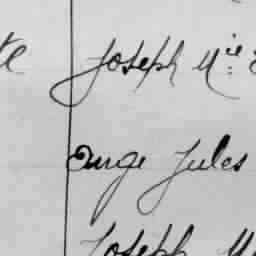 te Joseph Mie
Ange Jules
Joseph M